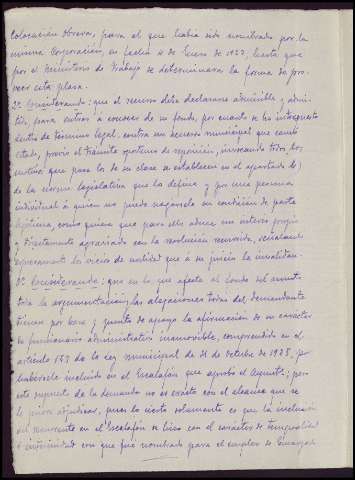 Colocación Obrera, para el que había sido nombrado por la
misma Corporación, en fecha 4 de Enero de 1937, hasta que
por el Ministerio de Trabajo se determinara la forma de pro-
veer esta plaza.
2º Considerando: que el recurso debe declararse admisible y admi-
tirlo para entrar a conocer de su fondo, por cuanto se ha interpuesto
dentro de término legal, contra un acuerdo municipal que causó
estado, previo el trámite oportuno de reposición, invocando todos los
motivos que para los de su clase se establecen en el apartado b)
de la norma legislativa que los define y por una persona
individual a quien no puede negársele su condición de parte
legítima, como quiera que para ello aduce un interés propio
y directamente agraviado con la resolución recurrida, señalando
expresamente los vicios de nulidad que a su juicio la invalidan.
3º Considerando: que en lo que afecta al fondo del asunto
toda la argumentación y las alegaciones todas del demandante
tienen por base y punto de apoyo la afirmación de su carácter
de funcionario administrativo inamovible, comprendido en el
artículo 153 de la Ley Municipal de 31 de Octubre de 1935, por
habérsele incluido en el Escalafón que aprobó el Aquntº; pero
este supuesto de la demanda no es exacto con el alcance que se
le quiere adjudicar, pues lo cierto solamente es que la inclusión
del recurrente en el Escalafón se hizo con el carácter de temporalidad
e interinidad con que fué nombrado para el empleo de Encargado